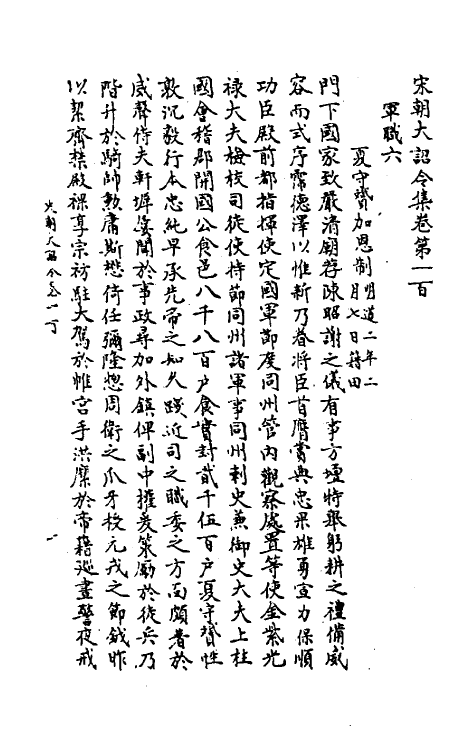 宋朝大詔令集卷第一百
軍職六
夏守贇加恩制明道二年二月七日籍田
門下國家致嚴清廟荐陳昭謝之儀有事方壇特舉躬耕之禮備威
容而式序霈德澤以惟新乃眷將臣首膺賞典忠果雄勇宣力保順
功臣殿前都指揮使定國軍節度同州管內觀察處置等使金紫光
祿大夫檢校司徒使持節同州諸軍事同州刺史兼御史大夫上柱
國會稽郡開國公食邑八千八百戶食實封貳千伍百戶夏守贇性
敦沉毅行本忠純早承先帝之知久踐近司之職委之方面頗著於
威聲侍夫軒墀寔聞於事政尋加外鎮俾副中權爰策勵於徒兵乃
階升於騎帥勲庸斯懋倚任彌隆揔周衛之爪牙校元戎之節鉞昨
以絜齊禁殿祼享宗祊駐大駕於帷宮手洪縻於帝籍巡晝警夜戒
宋朝大詔令卷一百 一